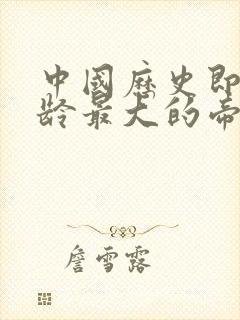 中國歷史即
龄最大的帝
詹雪露